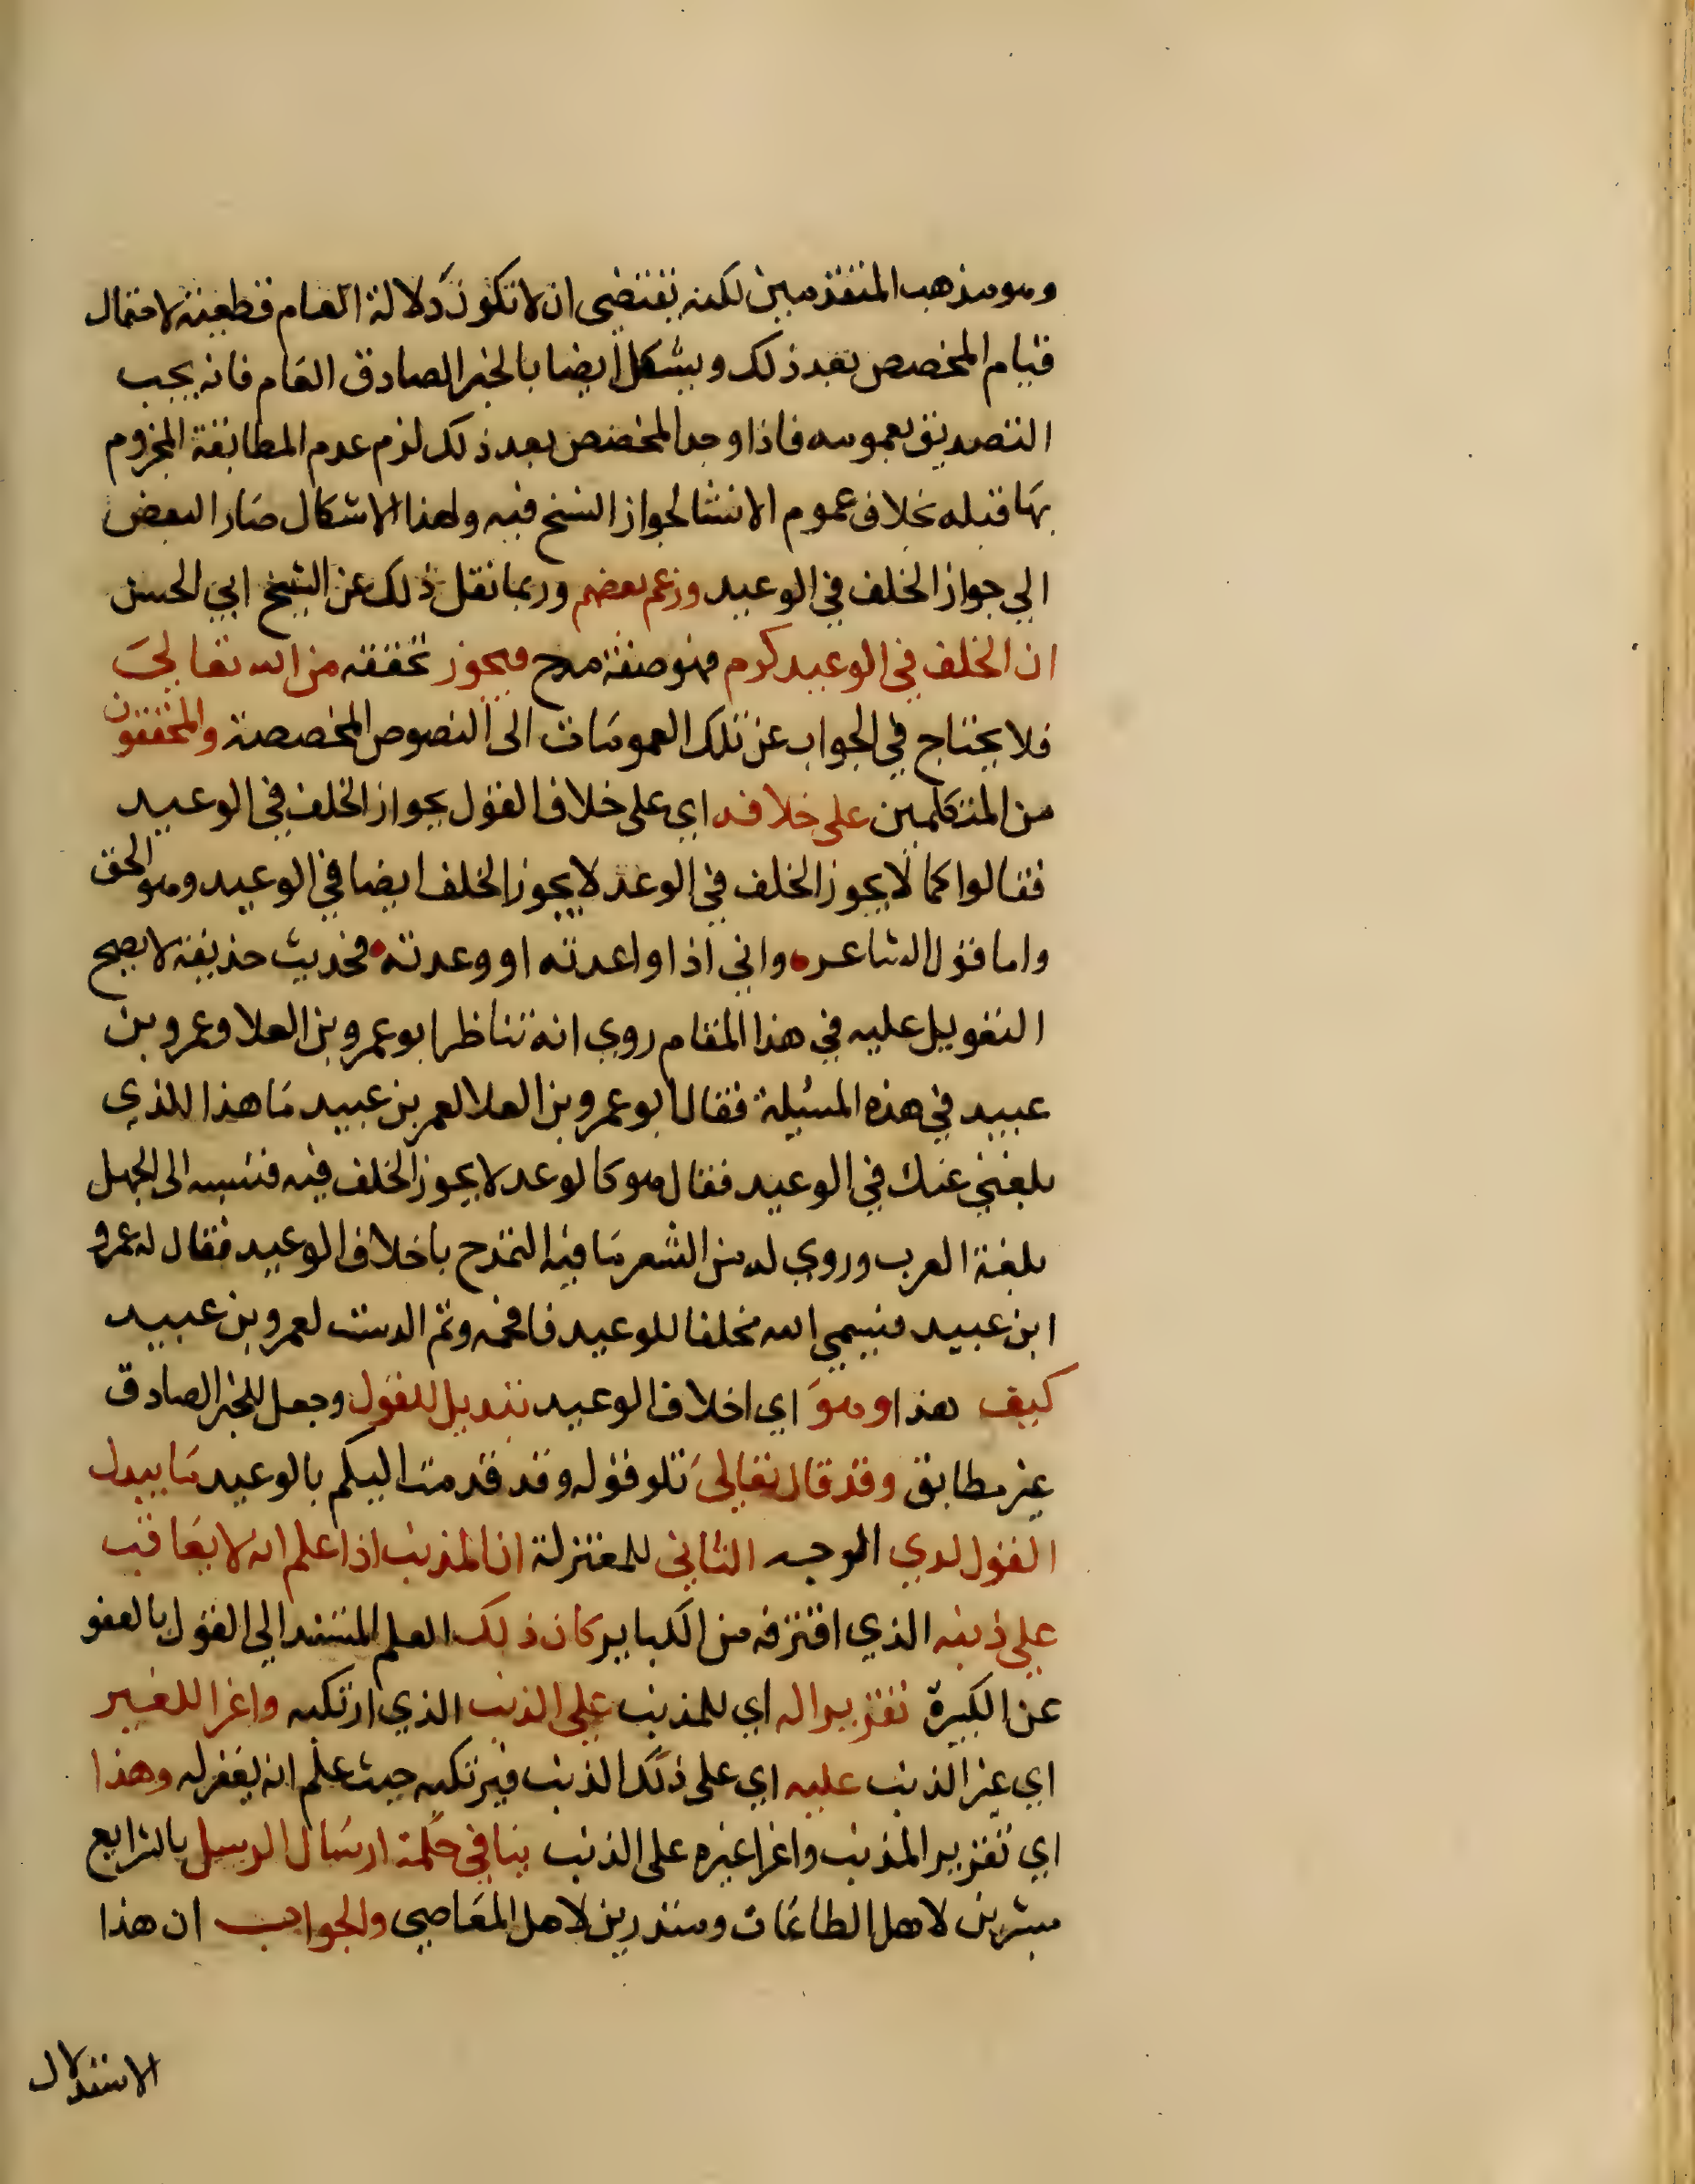 وهو مذهب المتقدمين لكنه يقتضي ان لا تكون دلالة العام قطعية لاحتمال
قيام المخصص بعد ذلك ويشكل ايضا بالخبر الصادق العام فانه يجب
التصديق بعمومه فاذا وجد المخصص بعد ذلك لزم عدم المطابقة المجزوم
بها قبله بخلاف عموم الانشا لجواز النسخ فيه ولهذا الاشكال صار البعض
الي جواز الخلف في الوعيد وزعم بعضهم وربما نقل ذلك عن الشيخ ابي الحسن
ان الخلف في الوعيد كرم فهو صفة مدح فيجوز تحققه من الله تعالي
فلا يحتاج في الجواب عن تلك العمومات الى النصوص المخصصة والمحققون
من المتكلمين علي خلافه اي على خلاف القول بجواز الخلف في الوعيد
فقالوا كما لا يجوز الخلف في الوعد لا يجوز الخلف ايضا في الوعيد وهو الحق
واما قول الشاعر واني اذا واعدته او وعدته فحديث حذيفة لا يصح
التعويل عليه في هذا المقام روي انه تناظر ابو عمرو بن العلا وعمرو بن
عبيد في هذه المسئلة فقال ابو عمرو بن العلا لعمر بن عبيد ما هذا الذي
بلغني عنك في الوعيد فقال هو كالوعد لا يجوز الخلف فيه فنسبه الى الجهل
بلغة العرب وروي له من الشعر ما فيه التمدح باخلاف الوعيد فقال له عمرو
ابن عبيد فيسمي الله مخلفا للوعيد فافحمه وتم الدست لعمرو بن عبيد
كيف هذا وهو اي اخلاف الوعيد تبديل للقول وجعل للخبر الصادق
غير مطابق وقد قال تعالى تلو قوله وقد قدمت اليكم بالوعيد ما يبدل
القول لدي الوجه الثاني للمعتزلة ان المذنب اذا علم انه لا يعاقب
علي ذنبه الذي اقترفه من الكباير كان ذلك العلم المستند الي القول بالعفو
عن الكبيرة تقريرا له اي للمذنب علي الذنب الذي ارتكبه واغرا للغير
اي غير الذنب عليه اي على ذلك الذنب فيرتكبه حيث علم انه يغفر له وهذا
اي تقرير المذنب واغرا غيره على الذنب ينافي حكمة ارسال الرسل بالشرايع
مبشرين لاهل الطاعات ومنذرين لاهل المعاصي والجواب ان هذا
الاستدلال